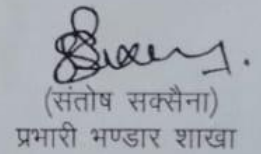 (संतोष सक्सैना)
प्रभारी भण्डार शाखा